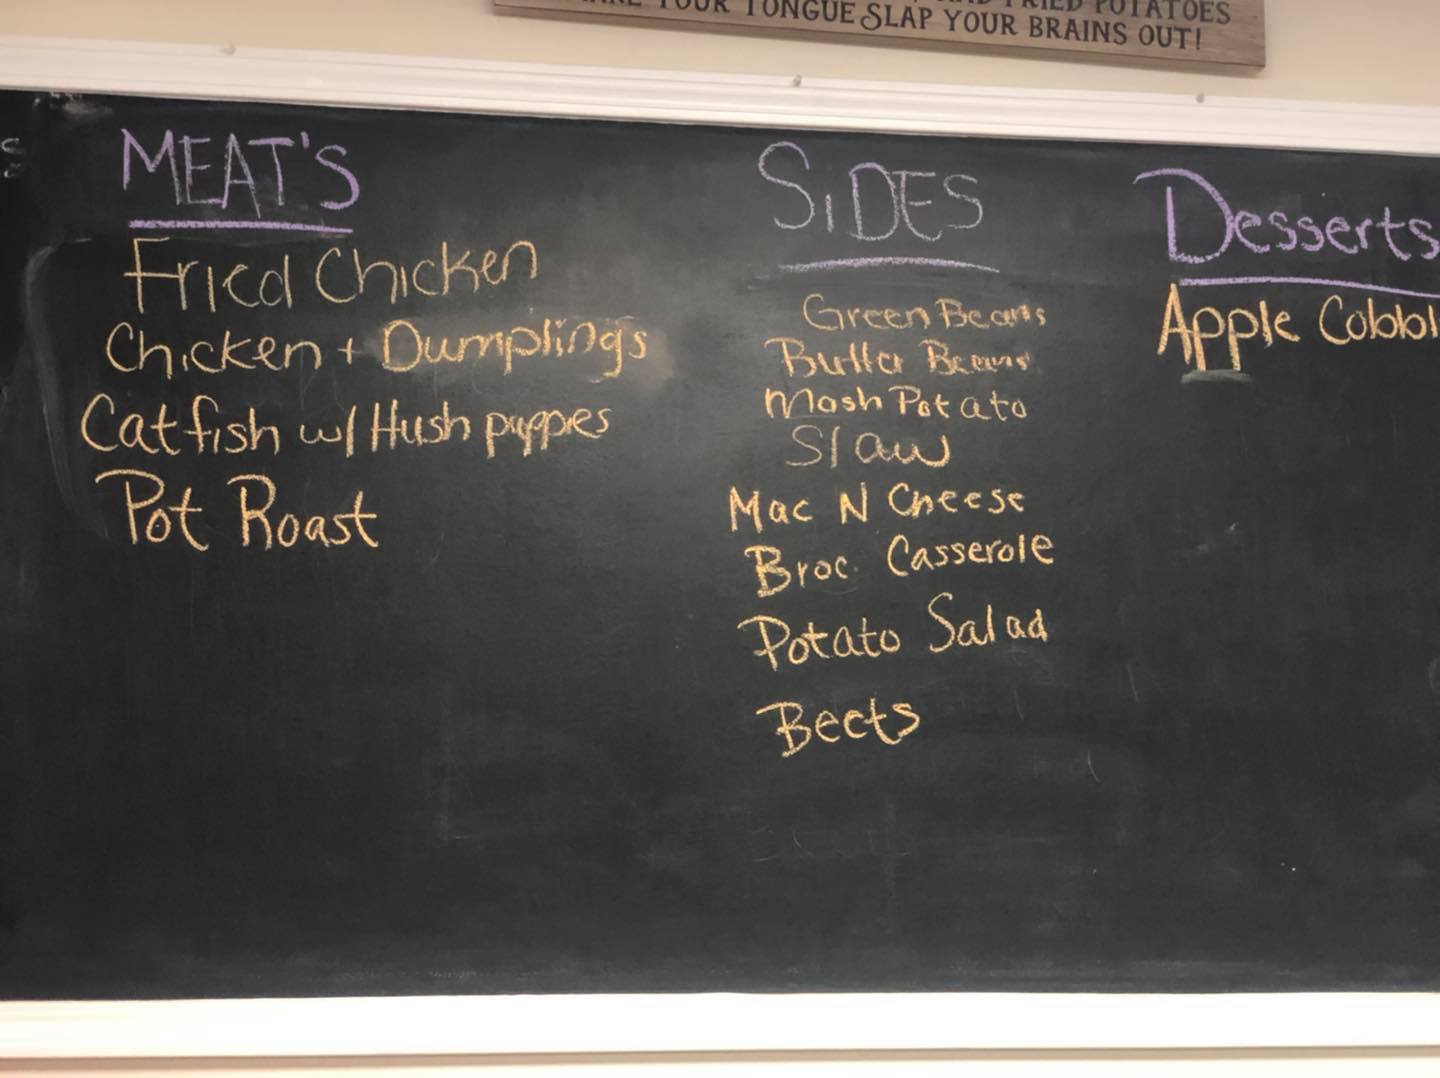 FRIED POTATOES
YOUR TONGUE SLAP YOUR BRAINS OUT!
MEAT'S
Fried Chicken
Chicken + Dumplings
Catfish w/ Hush puppies
Pot Roast
SiDES
Green Beans
Butter Beans
Mash Potato
Slaw
Mac N Cheese
Broc. Casserole
Potato Salad
Beets
Desserts
Apple Cobbl